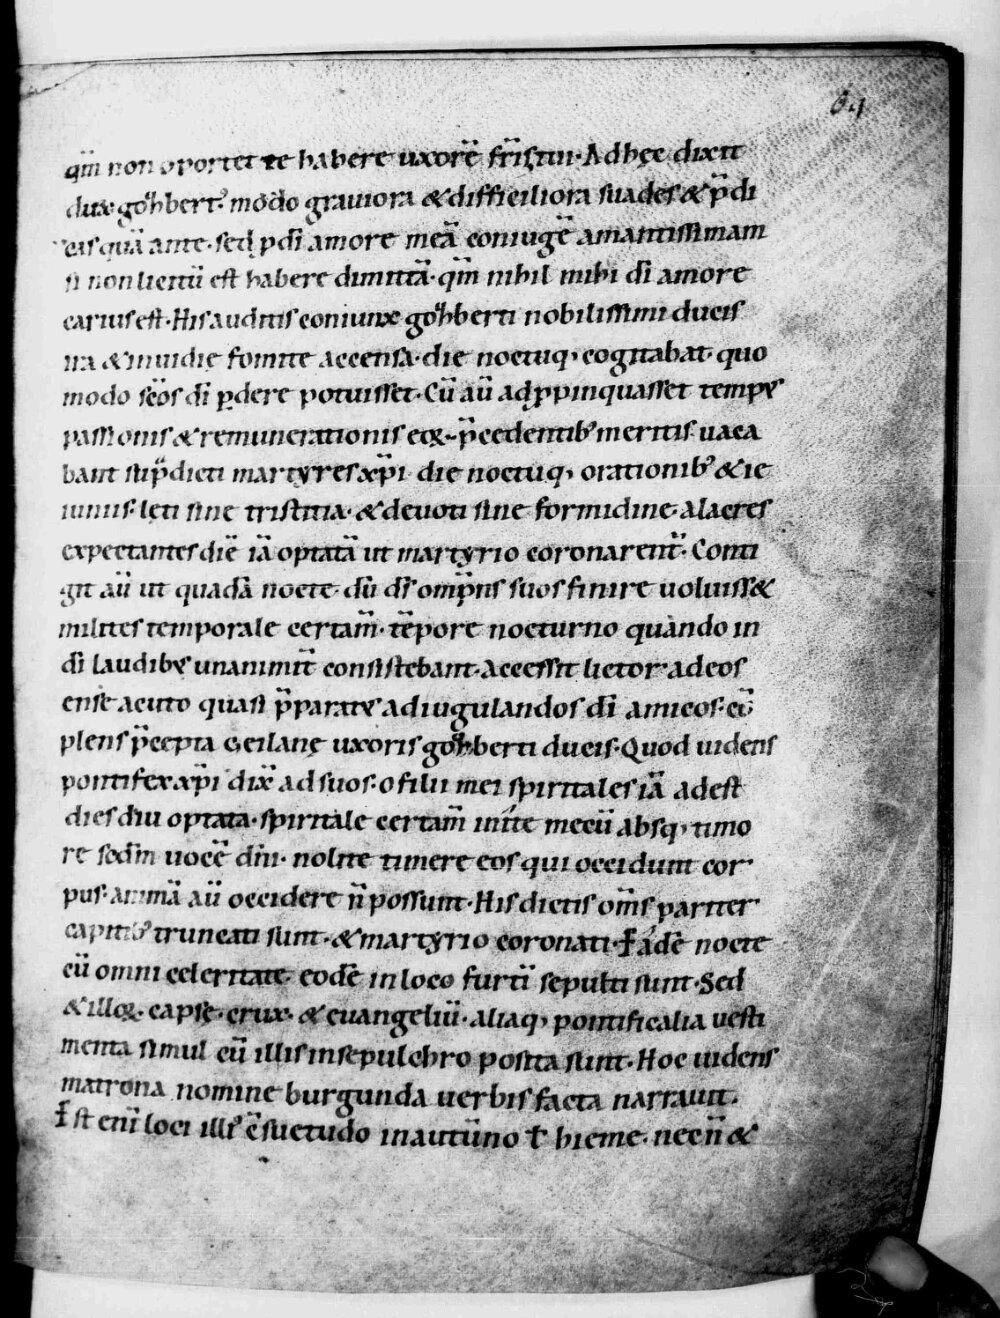 64
qm̄ non oportet te habere uxorē fr̄is tui· Ad hęc dixit
dux· gozbert᷒ modo grauiora & difficiliora suades & p̄di
cas quā ante· sed p dī amore meā coniugē amantissimam
si non licitū est habere dimittā· qm̄ nihil mihi dī amore
carius est· His auditis coniunx gozberti nobilissimi ducis
ira & inuidię fomite accensa· die noctuq; cogitabat· quo
modo sc̄os dī ꝑdere potuisset· Cū aū adꝓpinquasset temp᷒
passionis & remunerationis eoꝝ p̄cedentib᷒ meritis· uaca
bant sup̄dicti martyres xp̄i die noctuq; orationib᷒ & ie
iuniis· lęti sine tristitia· & deuoti sine formidine· alacres
expectantes diē iā optatā ut martyrio coronarent̄· Conti
git aū ut quadā nocte· dū dī omp̄ns suos finire uoluiss&
milites temporale certam̄· tēpore nocturno quando in
dī laudib᷒ unanimit̄ consistebant· accessit lictor ad eos
ense acuto quasi p̄parat᷒ ad iugulandos dī amicos· cū
plens p̄cepta Geilanę uxoris gozberti ducis· Quod uidens
pontifex xp̄i dix̄ ad suos· o filii mei spiritales iā adest
dies diu optata· spiritale certam̄ inite mecū absq; timo
re sedm uocē dn̄i· nolite timere eos qui occidunt cor
pus· animā aū occidere n̄ possunt· His dictis om̄s pariter
capitib᷒ truncati sunt· & martyrio coronati· Eadē nocte
cū omni celeritate· eodē in loco furtī sepulti sunt· Sed
& illoꝝ· capsę· crux· & euangeliū· aliaq; pontificalia uesti
menta simul cū illis in sepulchro posita sunt· Hoc uidens
matrona nomine burgunda uerbis facta narrauit·
Est enī loci illi᷒ c̄suetudo in autūno ł hieme· necn̄ &